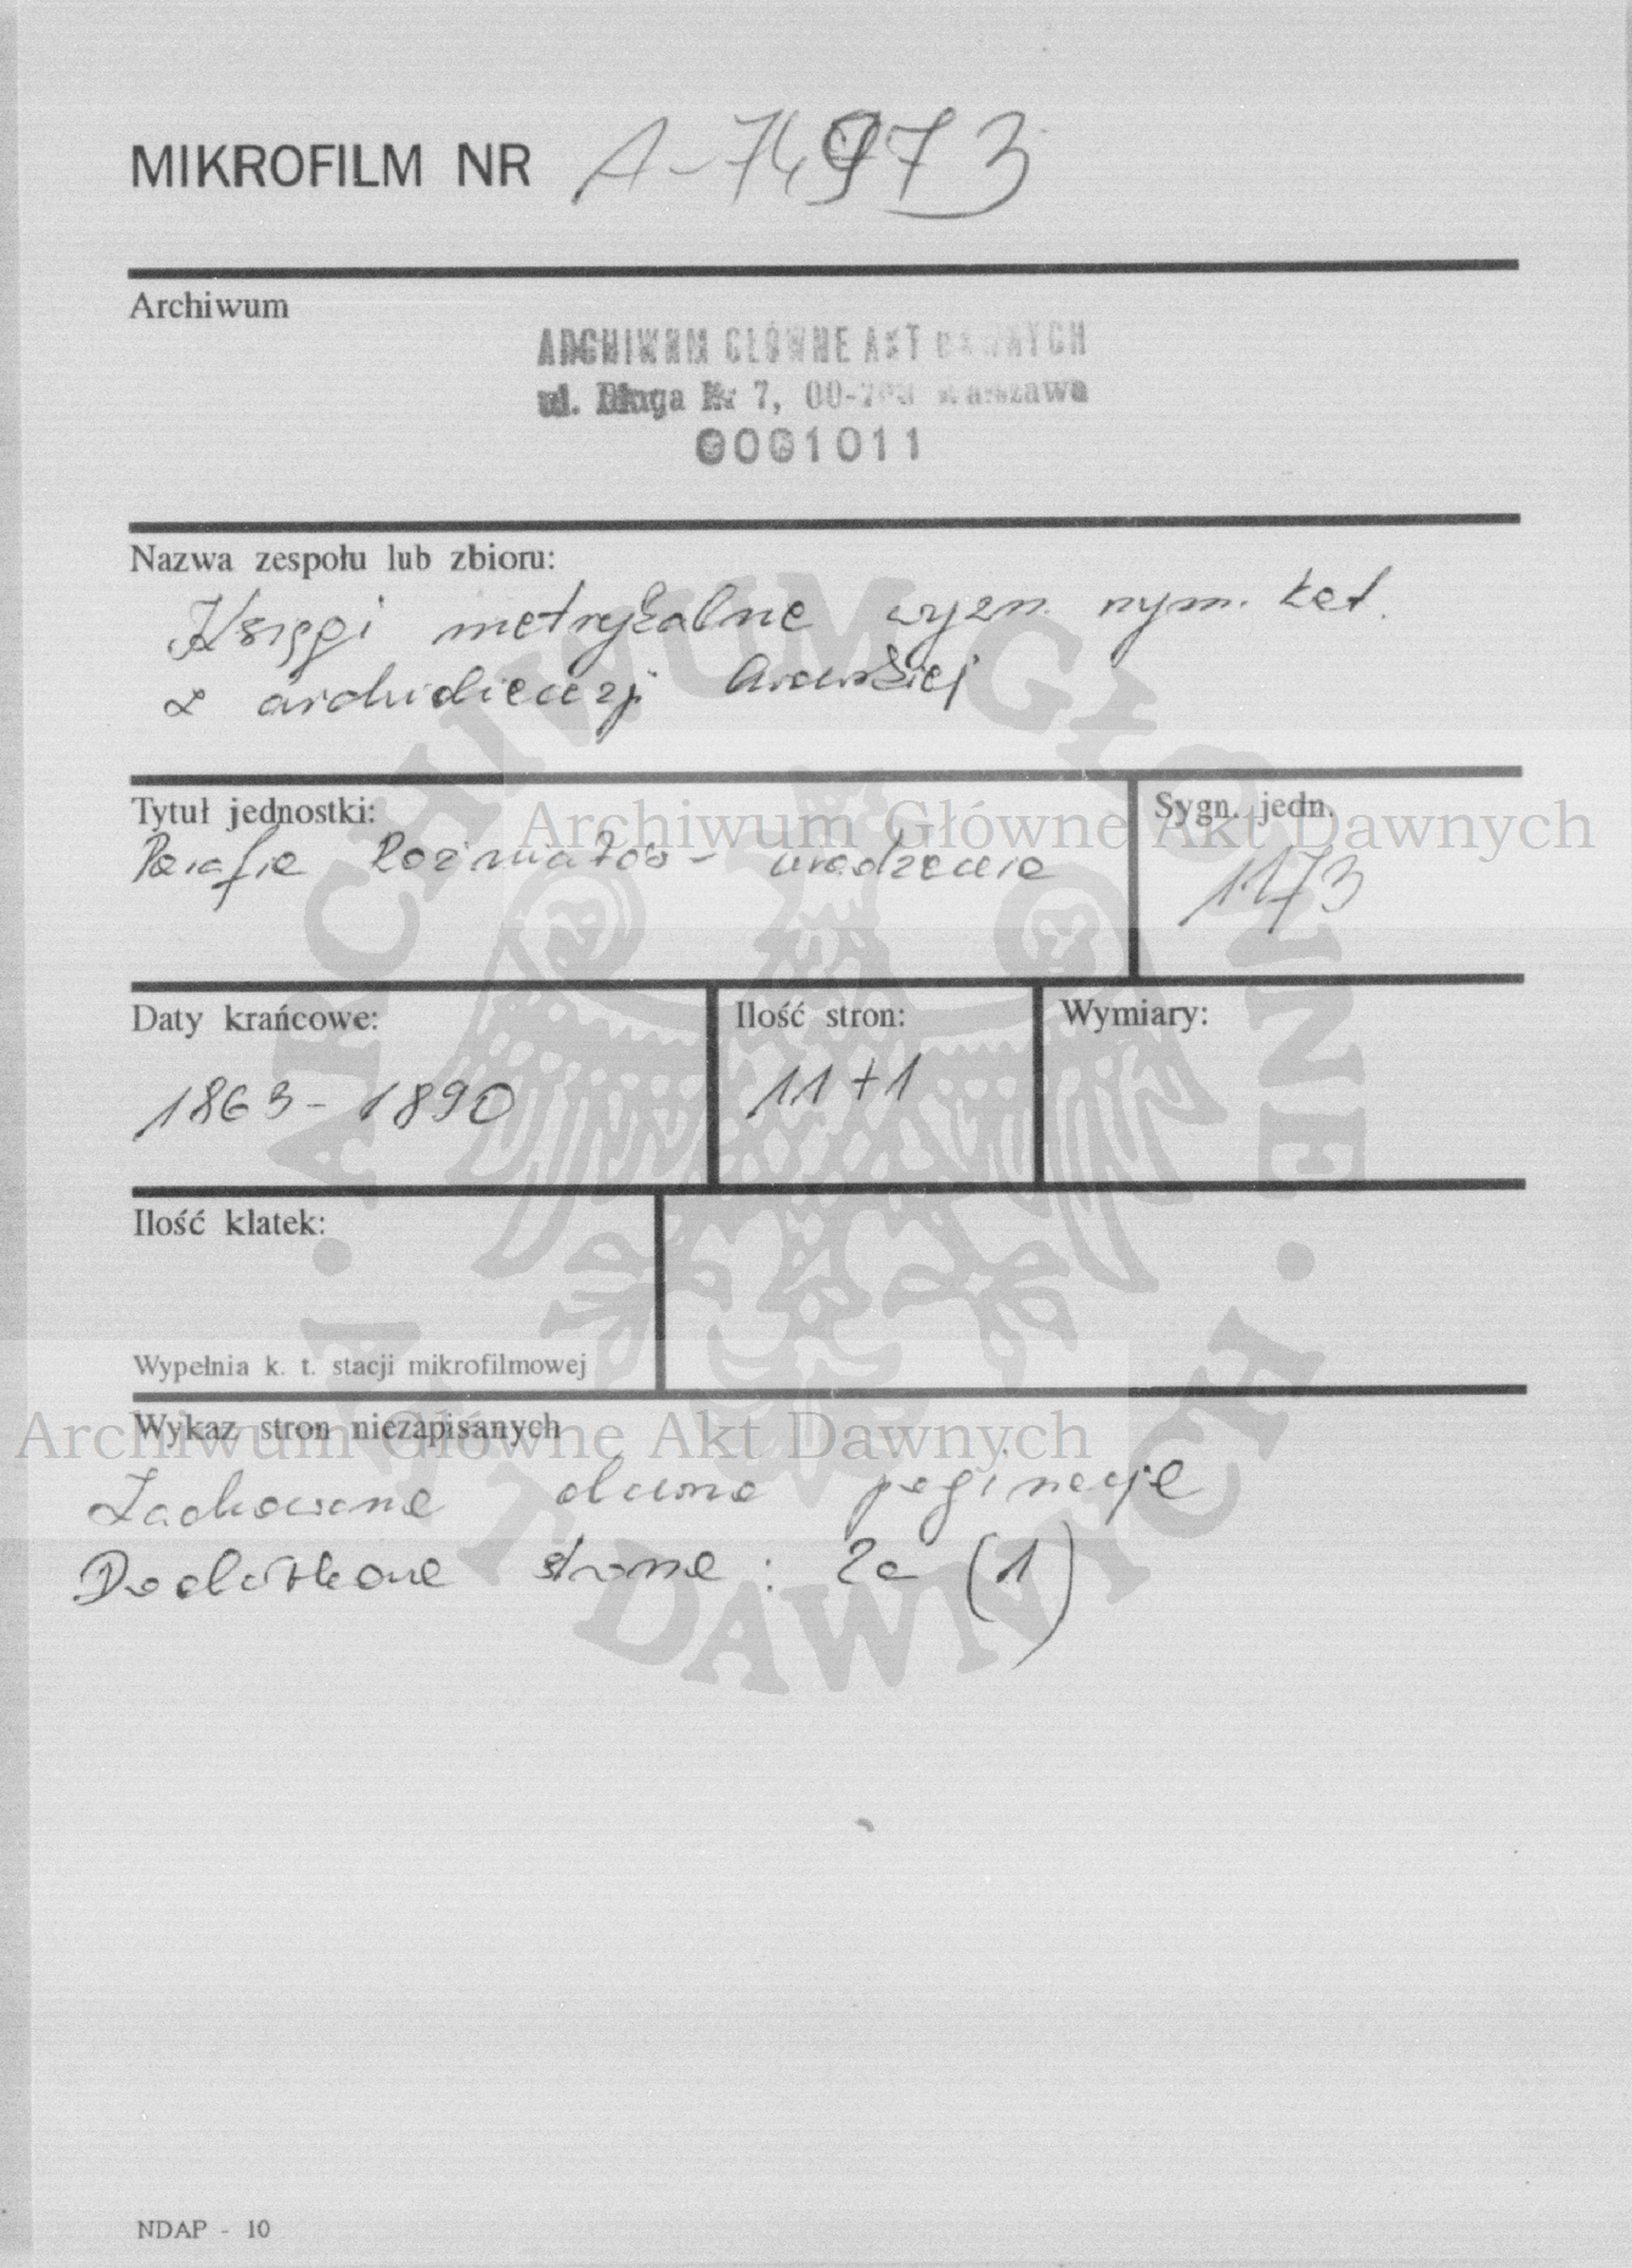 MIKROFILM NR A-74973
Archiwum
ARCHIWUM GŁÓWNE AKT DAWNYCH
ul. Długa Nr 7, 00-263 Warszawa
0001011
Nazwa zespołu lub zbioru:
Księgi metrykalne wyzn. rzym. kat.
z archidiecezji lwowskiej
Tytuł jednostki:
Parafia Rożniatów - urodzenia
Sygn. jedn.
1173
Archiwum Główne Akt Dawnych
Daty krańcowe:
1863-1890
Ilość stron:
11+1
Wymiary:
Ilość klatek:
Wypełnia k. t. stacji mikrofilmowej
Wykaz stron niezapisanych
Archiwum Główne Akt Dawnych
Zachowano dawną paginację
Dodatkowe strony: 2a (1)
ARCHIWUM GŁÓWNE · AKT DAWNYCH ·
NDAP - 10